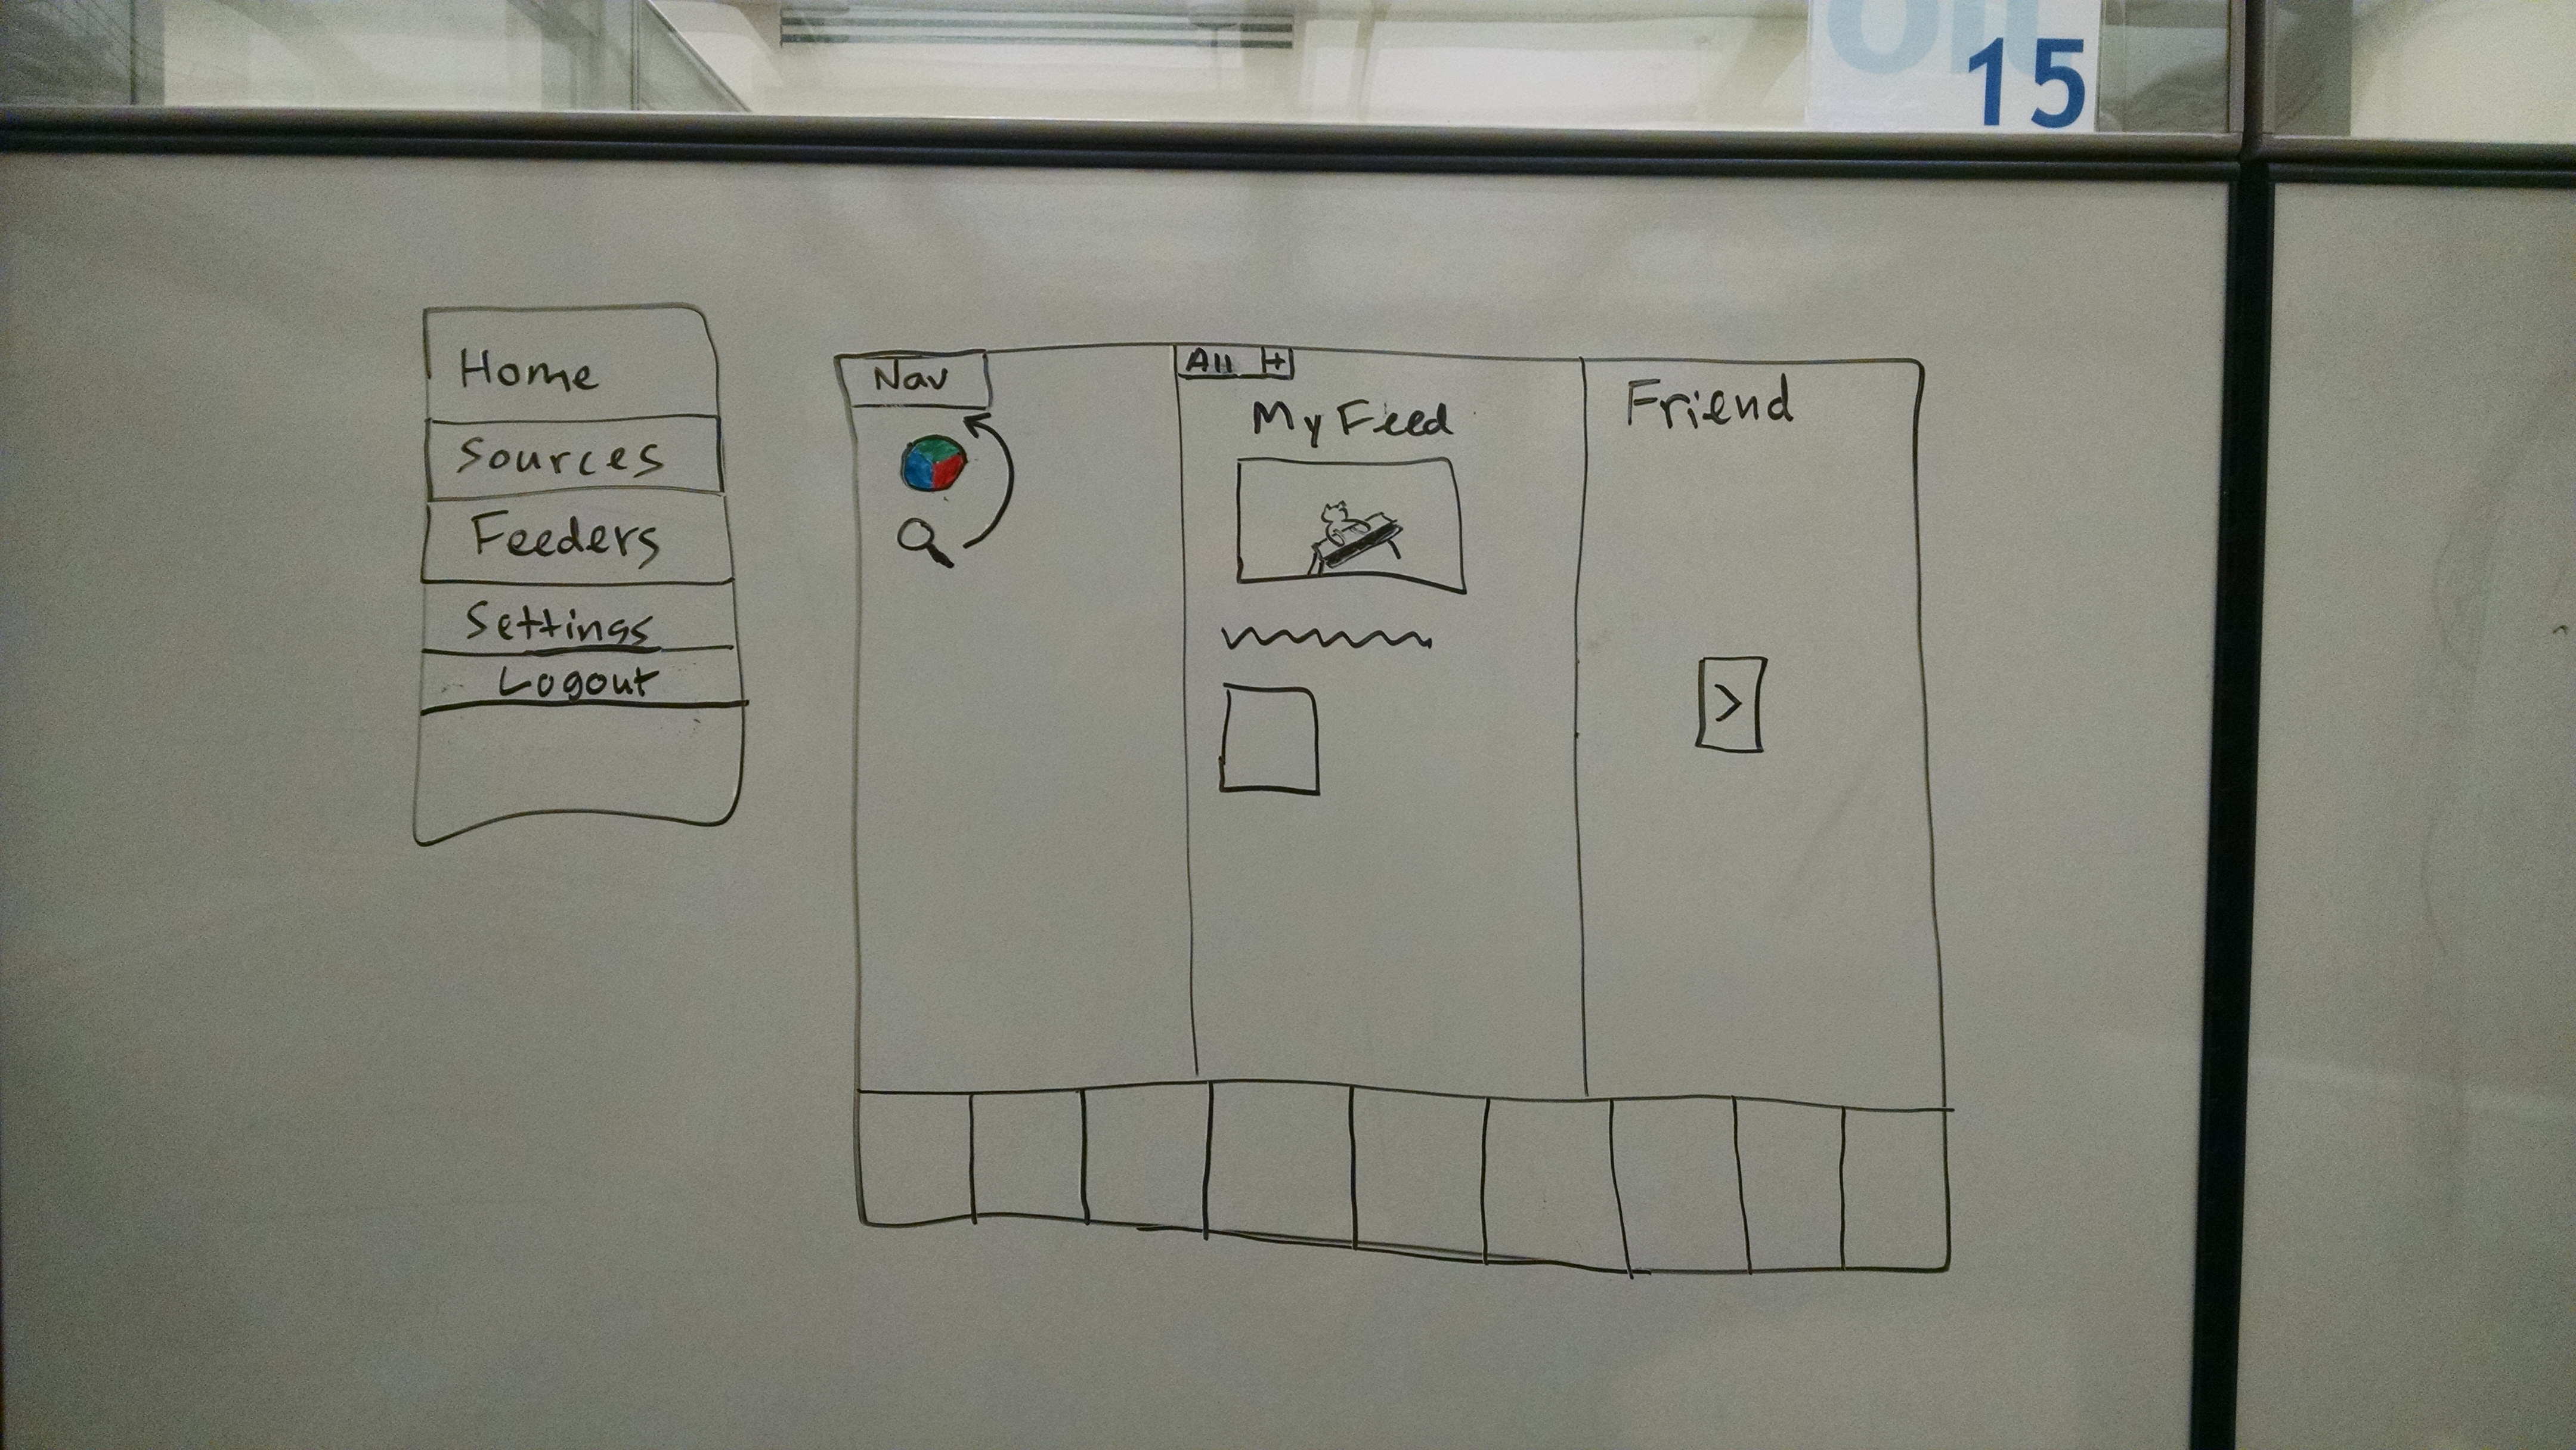 15
Home
Sources
Feeders
Settings
Logout
Nav
All +
My Feed
Friend
>